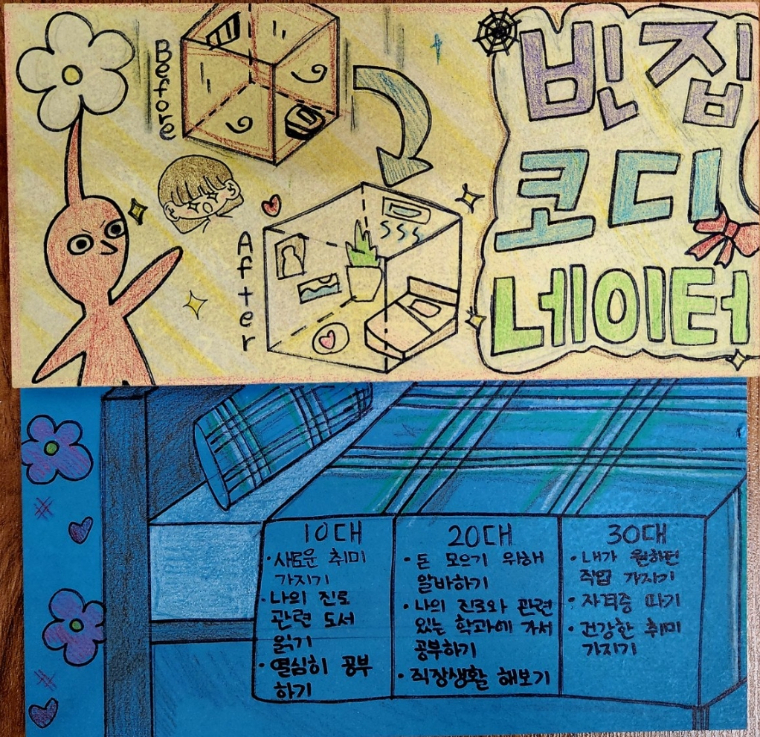 Before
After
빈집
코디
네이터
10대
· 새로운 취미
가지기
· 나의 진로
관련 도서
읽기
· 열심히 공부
하기
20대
· 돈 모으기 위해
알바하기
· 나의 진로와 관련
있는 학과에 가서
공부하기
· 직장생활 해보기
30대
· 내가 원하던
직업 가지기
· 자격증 따기
· 건강한 취미
가지기